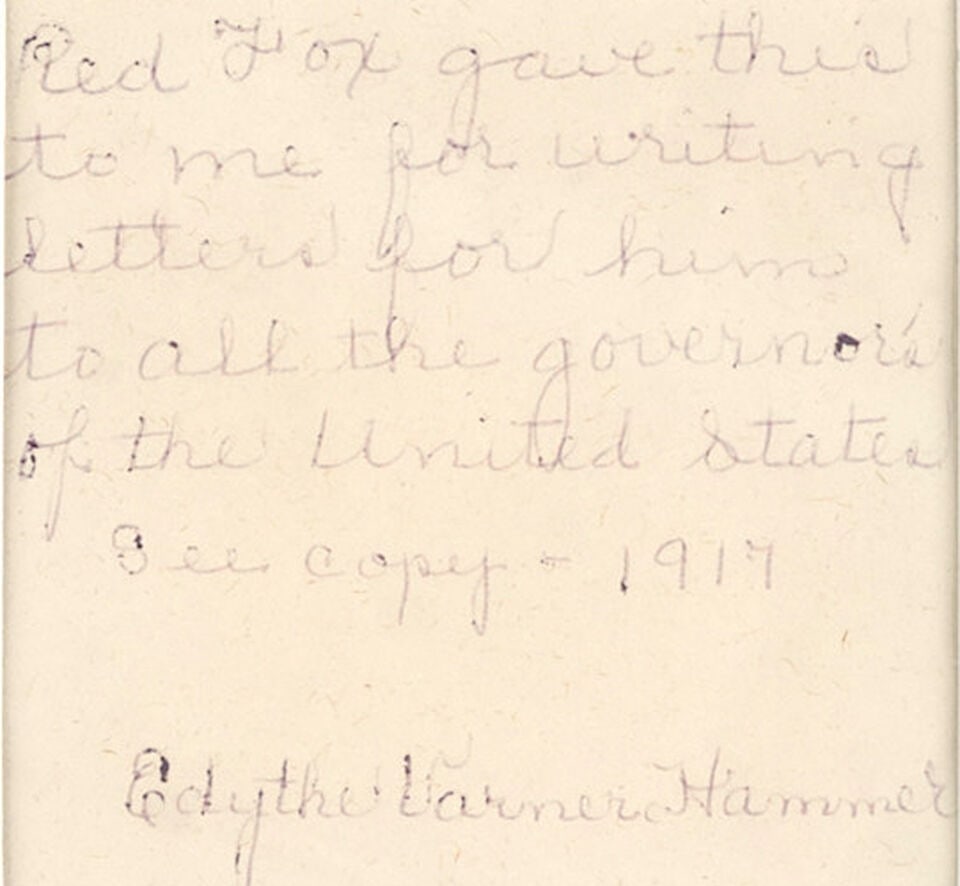 Red Fox gave this
to me for writing
letters for him
to all the governor's
of the United States
See copy - 1917
Edythe Varner Hammer